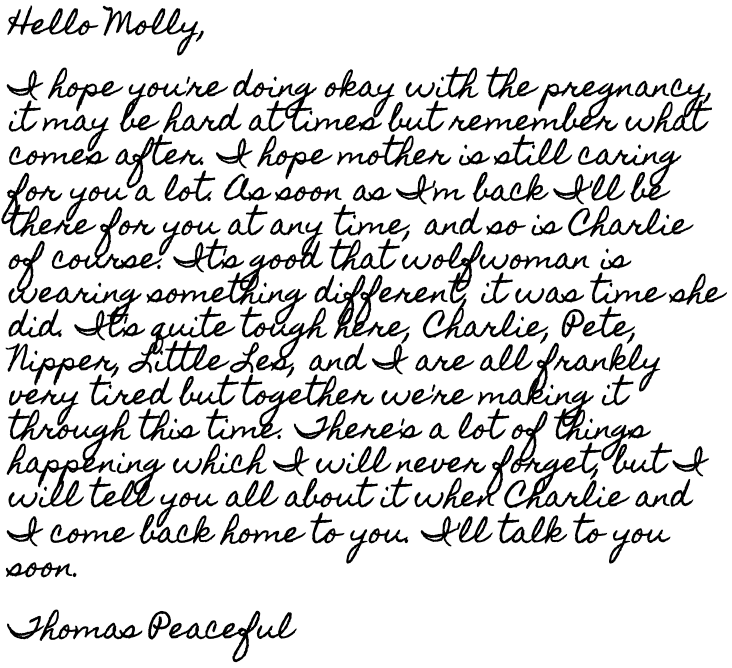 Hello Molly,
I hope you're doing okay with the pregnancy,
it may be hard at times but remember what
comes after. I hope mother is still caring
for you a lot. As soon as I'm back I'll be
there for you at any time, and so is Charlie
of course. It's good that wolfwoman is
wearing something different, it was time she
did. It's quite tough here, Charlie, Pete,
Nipper, Little Les, and I are all frankly
very tired but together we're making it
through this time. There's a lot of things
happening which I will never forget, but I
will tell you all about it when Charlie and
I come back home to you. I'll talk to you
soon.
Thomas Peaceful